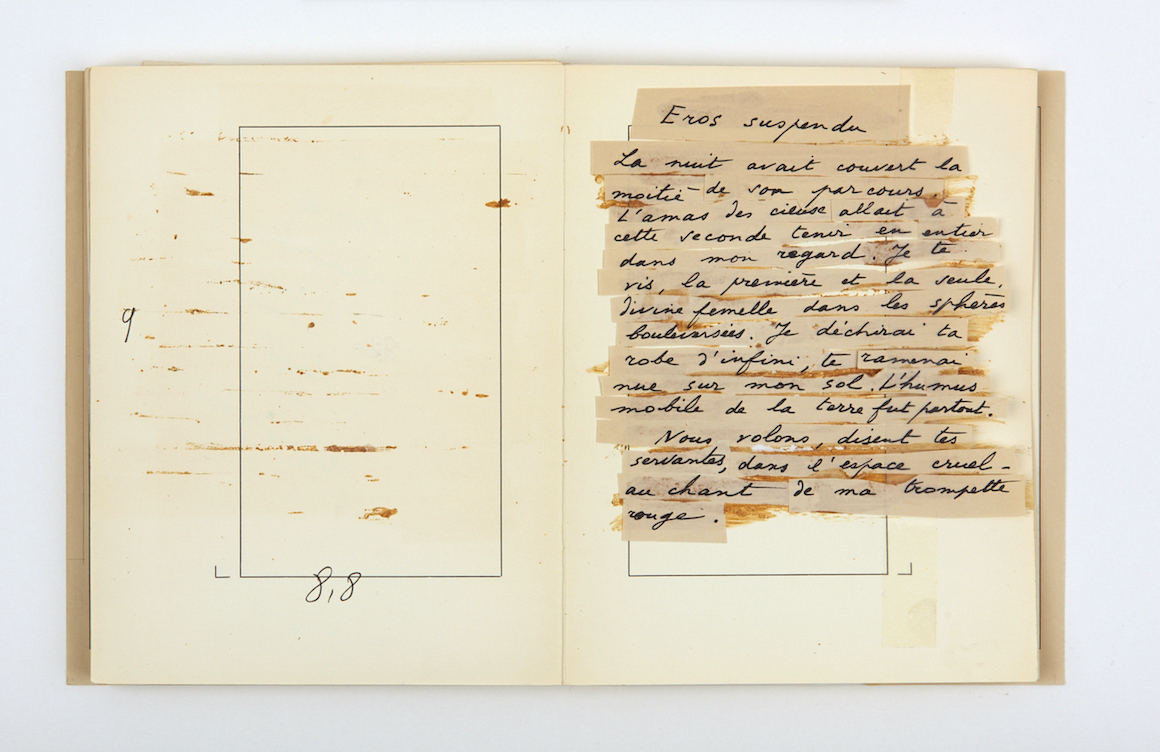 9
8,8
Eros suspendu
La nuit avait couvert la
moitié de son parcours.
L'amas des cieux allait à
cette seconde tenir en entier
dans mon regard. Je te
vis, la première et la seule,
divine femelle dans les sphères
bouleversées. Je déchirai ta
robe d'infini, te ramenai
nue sur mon sol. L'humus
mobile de la terre fut partout.
Nous volons, disent tes
servantes, dans l'espace cruel –
au chant de ma trompette
rouge.